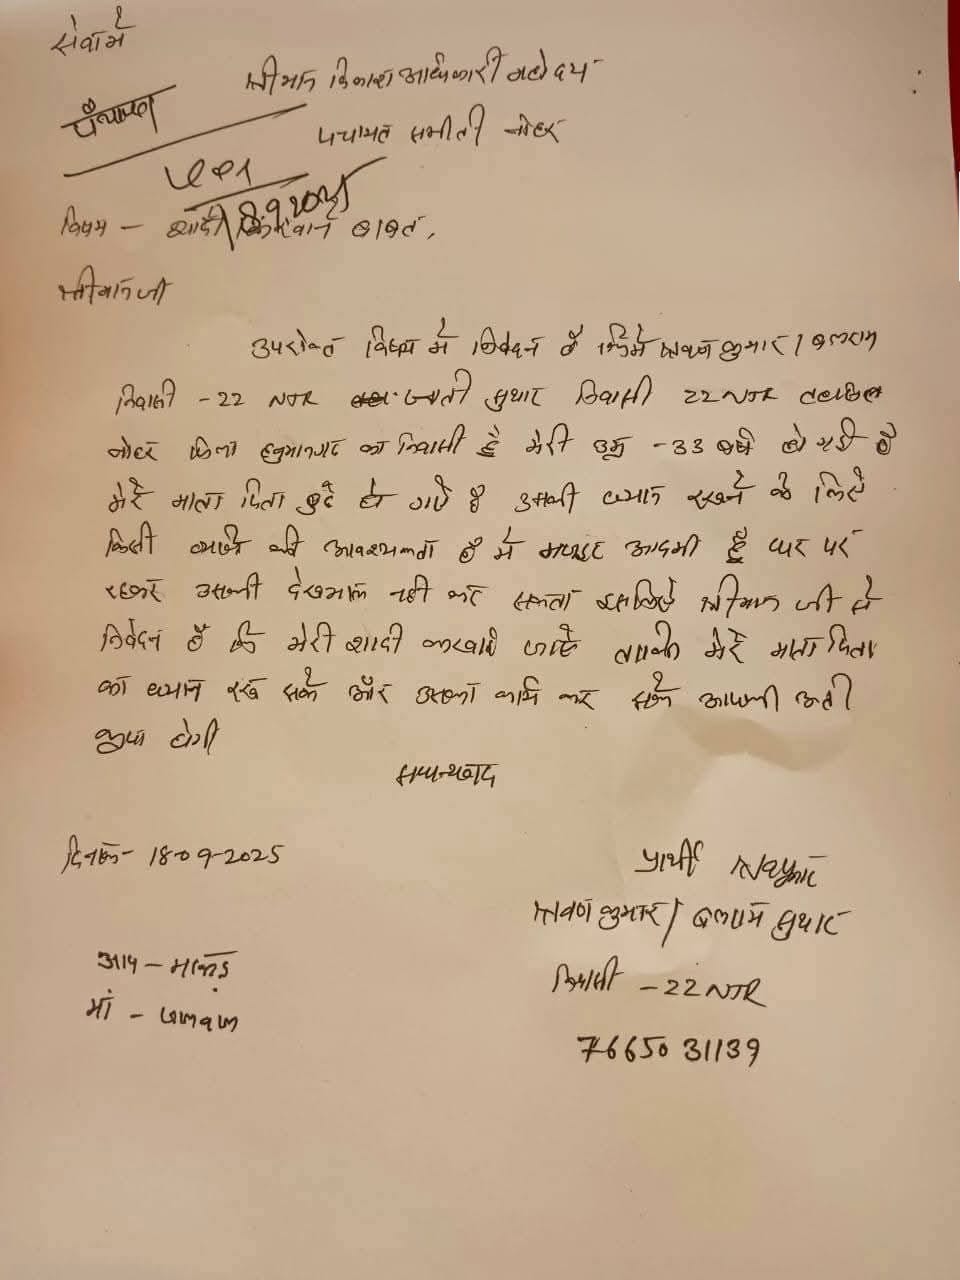 सेवामे
श्रीमान विकाश अधिकारी महोदय
पंचायत समीती नोहर
18.9.2025
विषय - शादी करवाने बाबत,
श्रीमानजी
उपरोक्त विषय मे निवेदन है कि मे श्रवण कुमार / बलराम
निवासी - 22 NTR जाती सुथार निवासी 22 NTR तहसिल
नोहर जिला हनुमानगढ का निवासी हूँ मेरी उम्र - 33 बर्ष हो गयी है
मेरे माता पिता बुढे हो गऐ है उसकी ध्यान रखने के लिऐ
किसी व्यक्ती की आवश्यकता है मे मजदूर आदमी हूँ घर पर
रहकर उसकी देखभाल नही कर सकता इसलिऐ श्रीमान जी से
निवेदन है कि मेरी शादी करवाई जाऐ ताकी मेरे माता पिता
का ध्यान रख सके और उसका कार्य कर सके आपकी अती
कृपा होगी
धन्यवाद
दिनाक - 18-09-2025
प्रार्थी
श्रवण कुमार / बलराम सुथार
निवासी - 22 NTR
76650 31139
मां -